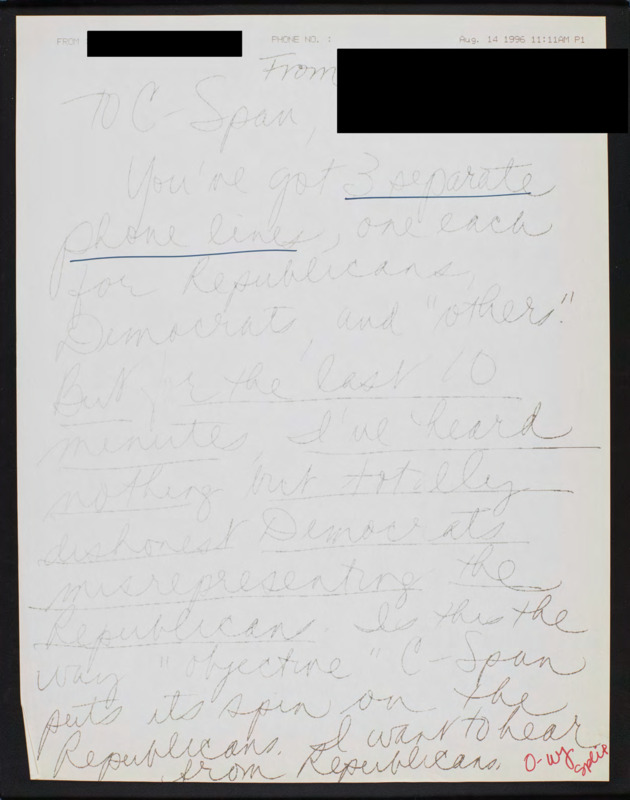 FROM PHONE NO. : Aug. 14 1996 11:11AM P1
From
To C-Span,
You've got 3 separate
phone lines, one each
for Republicans,
Democrats, and "others."
But for the last 10
minutes, I've heard
nothing but totally
dishonest Democrats
misrepresenting the
Republicans. Is this the
way "objective" C-Span
puts its spin on the
Republicans. I want to hear
from Republicans.